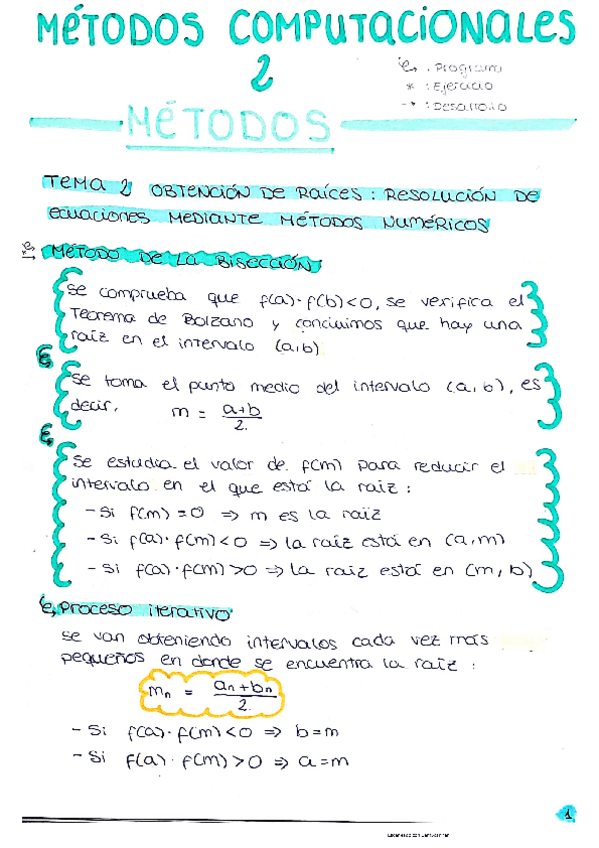 MÉTODOS COMPUTACIONALES
2
: Programa
* : Ejercicio
-* : Desarrollo
MÉTODOS
TEMA 2 OBTENCIÓN DE RAÍCES: RESOLUCIÓN DE
ECUACIONES MEDIANTE MÉTODOS NUMÉRICOS
MÉTODO DE LA BISECCIÓN
Se comprueba que f(a)·f(b)<0, se verifica el
Teorema de Bolzano y concluimos que hay una
raíz en el intervalo (a,b)
Se toma el punto medio del intervalo (a,b), es
decir, m = a+b
2
Se estudia el valor de f(m) para reducir el
intervalo en el que está la raíz:
- Si f(m) = 0 ⇒ m es la raíz
- Si f(a)·f(m)<0 ⇒ la raíz está en (a,m)
- Si f(a)·f(m)>0 ⇒ la raíz está en (m,b)
PROCESO ITERATIVO
Se van obteniendo intervalos cada vez más
pequeños en donde se encuentra la raíz:
mn = an+bn
2
- Si f(a)·f(m)<0 ⇒ b=m
- Si f(a)·f(m)>0 ⇒ a=m
1